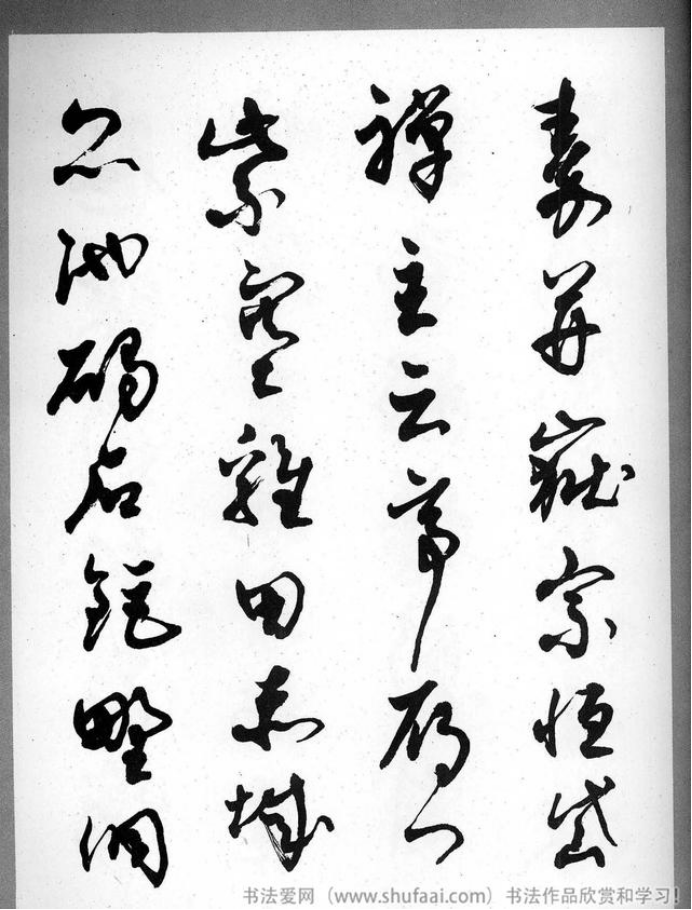 秦并嶽宗恒岱
禪主云亭雁门
紫塞雞田赤城
昆池碣石鉅野洞
书法爱网（www.shufaai.com）书法作品欣赏和学习！